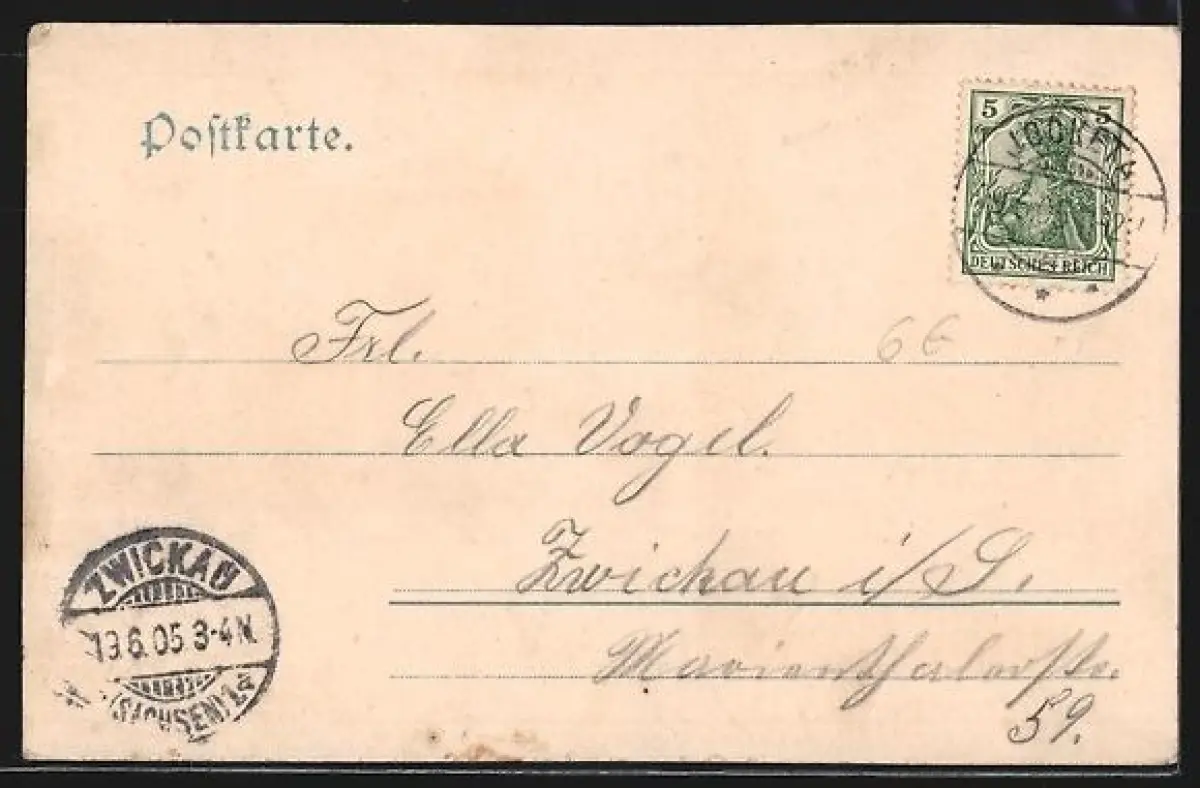 Postkarte.
5 5
JOCKETA
DEUTSCHES REICH
Frl.
6 €
Ella Vogel.
Zwickau i/S.
Marienthalerstr.
59.
ZWICKAU
19.6.05 3-4 N.
(SACHSEN) 1a